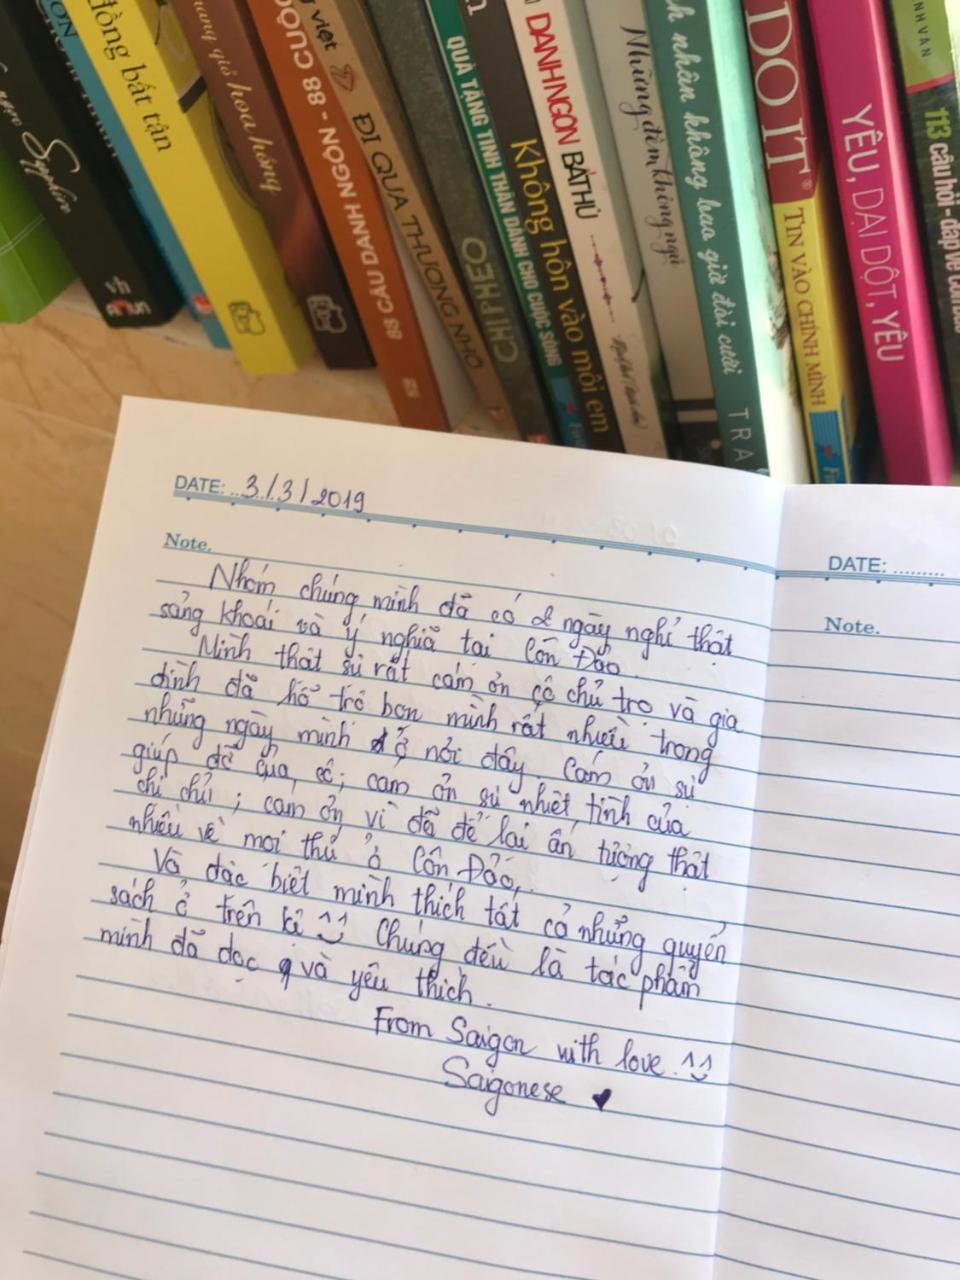 đồng bất tận
vh
hoa hồng
88 CÂU DANH NGÔN - 88 CUỘ
việt
ĐI QUA THƯƠNG NHỚ
CHÍ PHÈO
QUÀ TẶNG TINH THẦN DÀNH CHO CUỘC SỐNG
Không hôn vào môi em
DANH NGÔN BẤT HỦ
Những đêm không ngủ
nhân không bao giờ đòi cưới
TRA
DO IT
TIN VÀO CHÍNH MÌNH
YÊU, DẠI DỘT, YÊU
113 câu hỏi - đáp về
DATE: 3/3/2019
Note.
Nhóm chúng mình đã có 2 ngày nghỉ thật
sảng khoái và ý nghĩa tại Côn Đảo.
Mình thật sự rất cám ơn cô chủ trọ và gia
đình đã hỗ trợ bọn mình rất nhiều trong
những ngày mình ở nơi đây. Cám ơn sự
giúp đỡ của cô; cam ơn sự nhiệt tình của
chị chủ; cam ơn vì đã để lại ấn tượng thật
nhiều về mọi thứ ở Côn Đảo.
Và đặc biệt mình thích tất cả những quyển
sách ở trên kệ ^^ Chúng đều là tác phẩm
mình đã đọc và yêu thích.
From Saigon with love. ^^
Saigonese ♥
DATE: .........
Note.